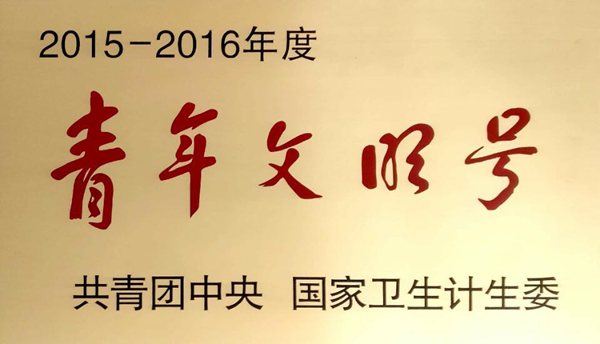 2015-2016年度
青年文明号
共青团中央 国家卫生计生委